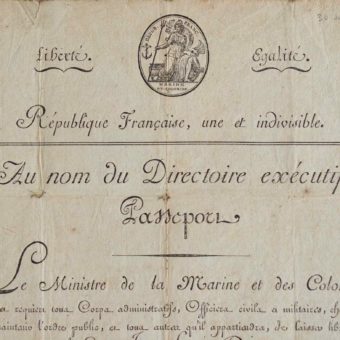 Liberté. Egalité.
MARINE
ET COLONIES
République Française, une et indivisible.
Au nom du Directoire exécutif
Passeport
Le Ministre de la Marine et des Colo
a requiert tous Corps administratifs, Officiers civils et militaires, ch
maintenir l'ordre public, et tous autres qu'il appartiendra, de laisser lib